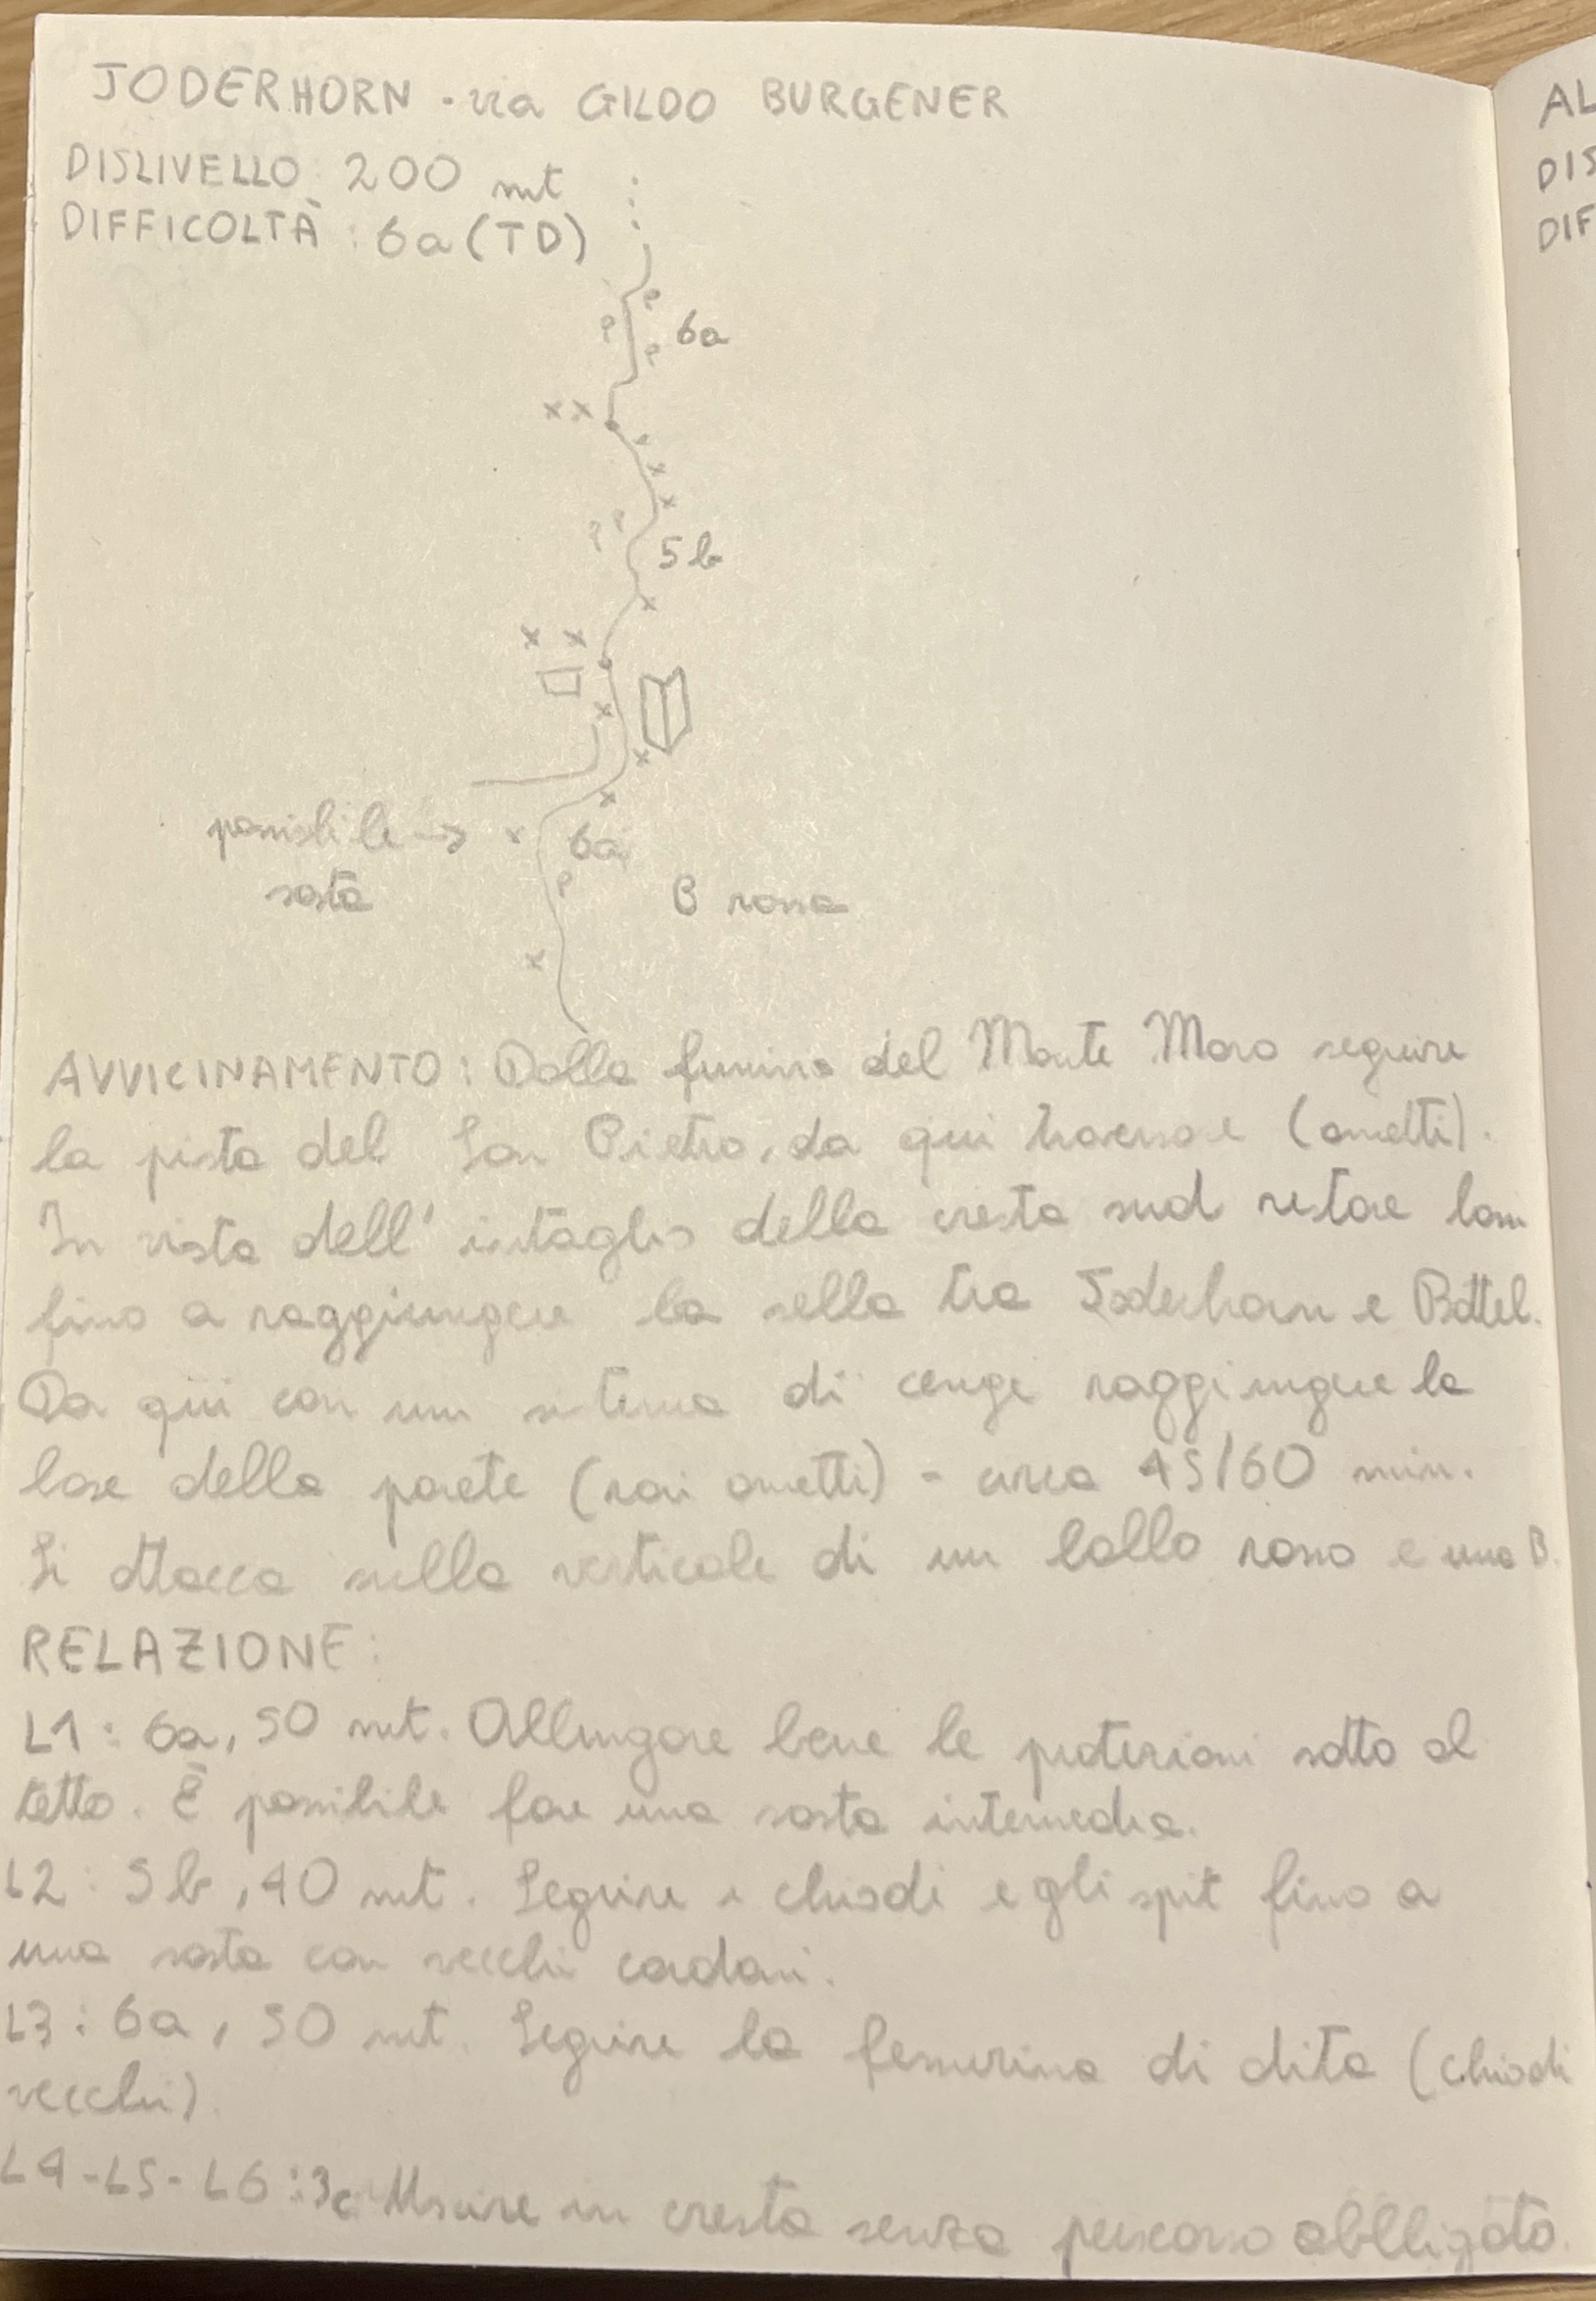 JODERHORN - via GILDO BURGENER
DISLIVELLO: 200 mt
DIFFICOLTÀ: 6a (TD)
6a
5b
possibile →
sosta
6a
B rossa
AVVICINAMENTO: Dalla funivia del Monte Moro seguire
la pista del San Pietro, da qui traverso e (ometti).
In vista dell' intaglio della cresta sud restare
fino a raggiungere la sella tra Joderhorn e Battel.
Da qui con un sistema di cenge raggiungere la
base della parete (rari ometti) - circa 45/60 min.
Si attacca sulla verticale di un bollo rosso e una B.
RELAZIONE:
L1: 6a, 50 mt. Allungare bene le protezioni sotto al
tetto. È possibile fare una sosta intermedia.
L2: 5b, 40 mt. Seguire i chiodi e gli spit fino a
una sosta con vecchi cordoni.
L3: 6a, 50 mt. Seguire la fessurina di dita (chiodi
vecchi).
L4-L5-L6: 3c Uscire in cresta senza percorso obbligato.
AL
DIS
DIF